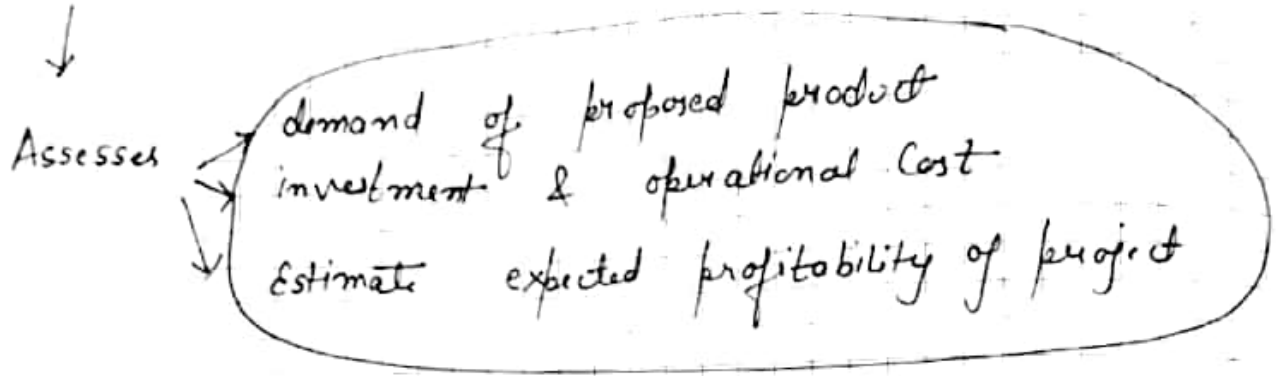 Assesses
demand of proposed product
investment & operational Cost
Estimate expected profitability of project